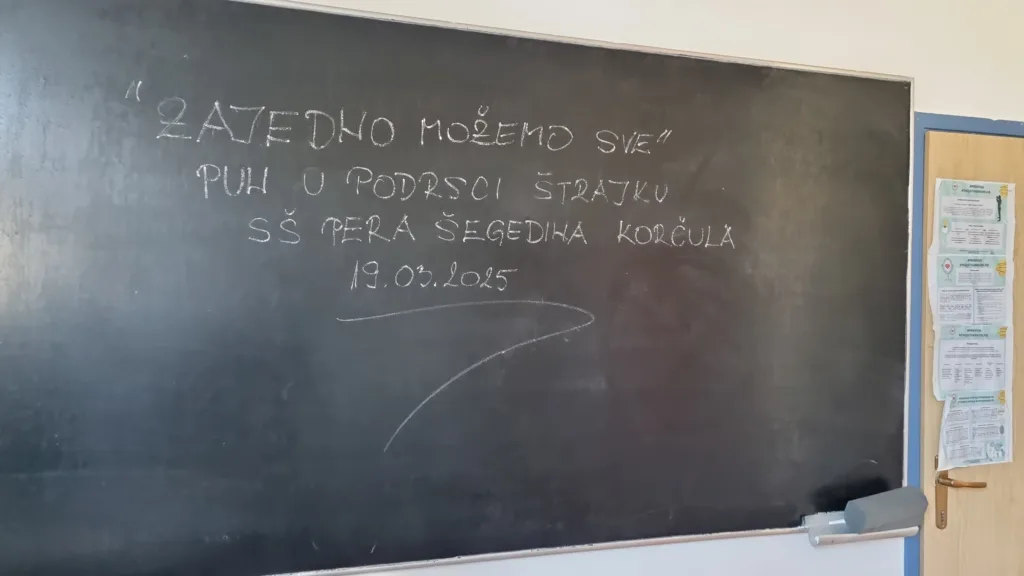 "ZAJEDNO MOŽEMO SVE"
PUN U PODRŠCI ŠTRAJKU
SŠ PERA ŠEGEDINA KORČULA
19.03.2025